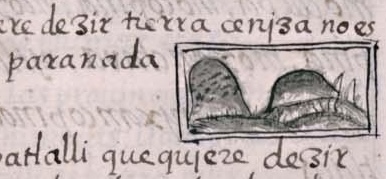 ere dezir tierra cenjza no es
para nada
atlalli que qujere dezir